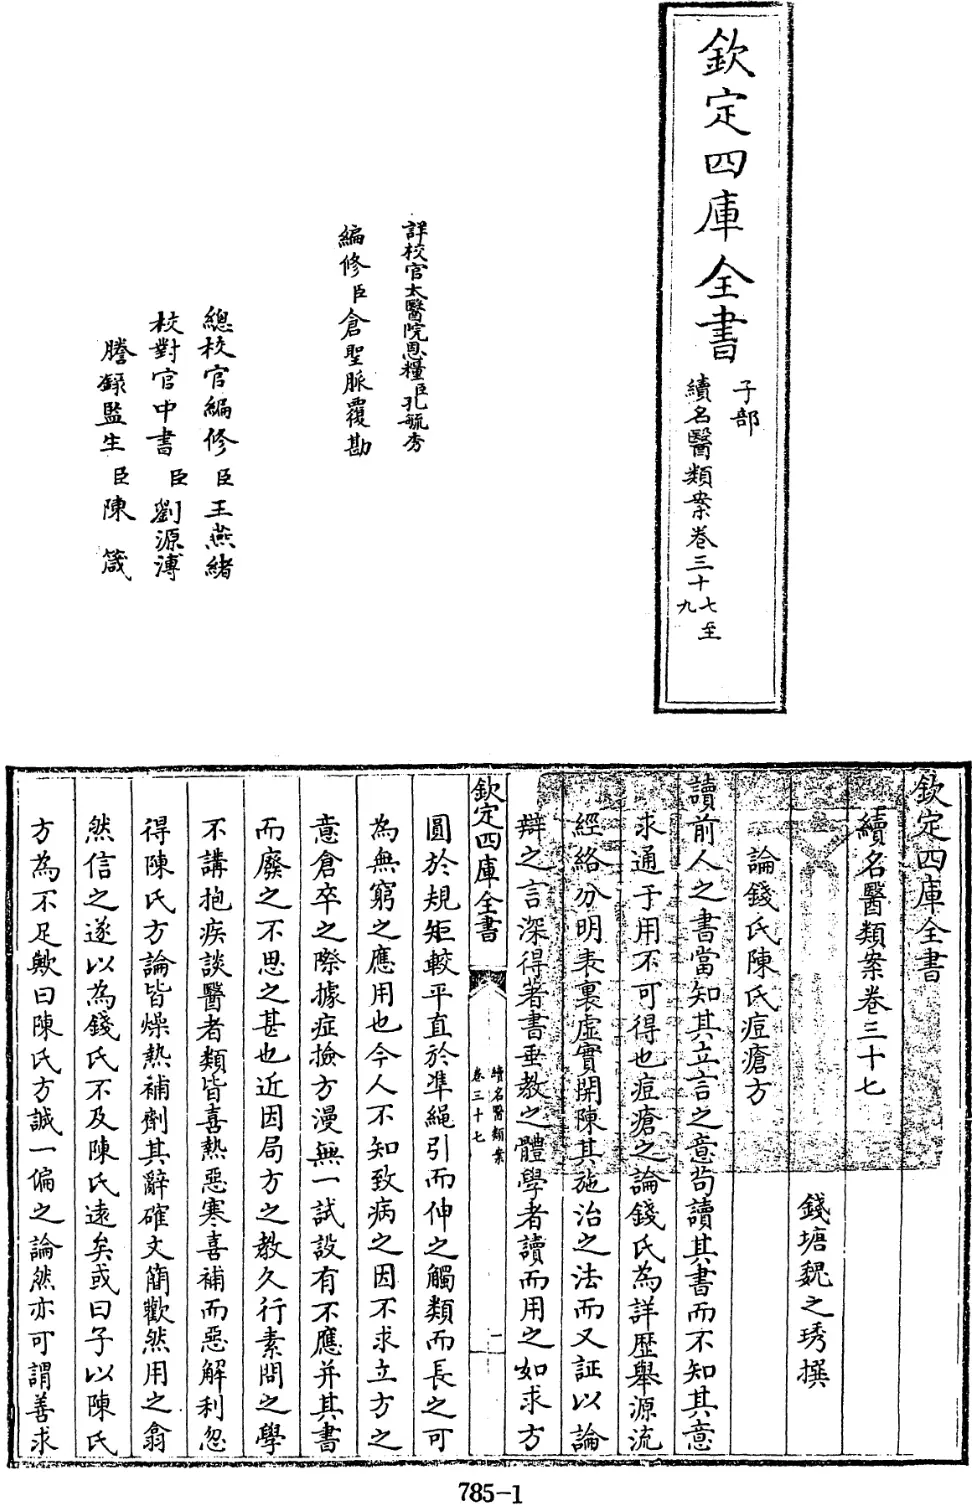 欽定四庫全書
子部
續名醫類案卷三十七至
九
詳校官太醫院恩糧臣孔毓秀
編修臣倉聖脈覆勘
總校官編修臣王燕緒
校對官中書臣劉源溥
謄錄監生臣陳箴
欽定四庫全書
續名醫類案卷三十七
錢塘魏之琇撰
論錢氏陳氏痘瘡方
讀前人之書當知其立言之意苟讀其書而不知其意
求通于用不可得也痘瘡之論錢氏為詳歷舉源流
經絡分明表裏虛實開陳其施治之法而又証以論
辯之言深得著書垂教之體學者讀而用之如求方
欽定四庫全書
續名醫類案
卷三十七
一
圓於規矩較平直於準繩引而伸之觸類而長之可
為無窮之應用也今人不知致病之因不求立方之
意倉卒之際據症撿方漫無一試設有不應并其書
而廢之不思之甚也近因局方之教久行素問之學
不講抱疾談醫者類皆喜熱惡寒喜補而惡解利忽
得陳氏方論皆燥熱補劑其辭確文簡歡然用之翕
然信之遂以為錢氏不及陳氏遠矣或曰子以陳氏
方為不足歟曰陳氏方誠一偏之論然亦可謂善求
785-1